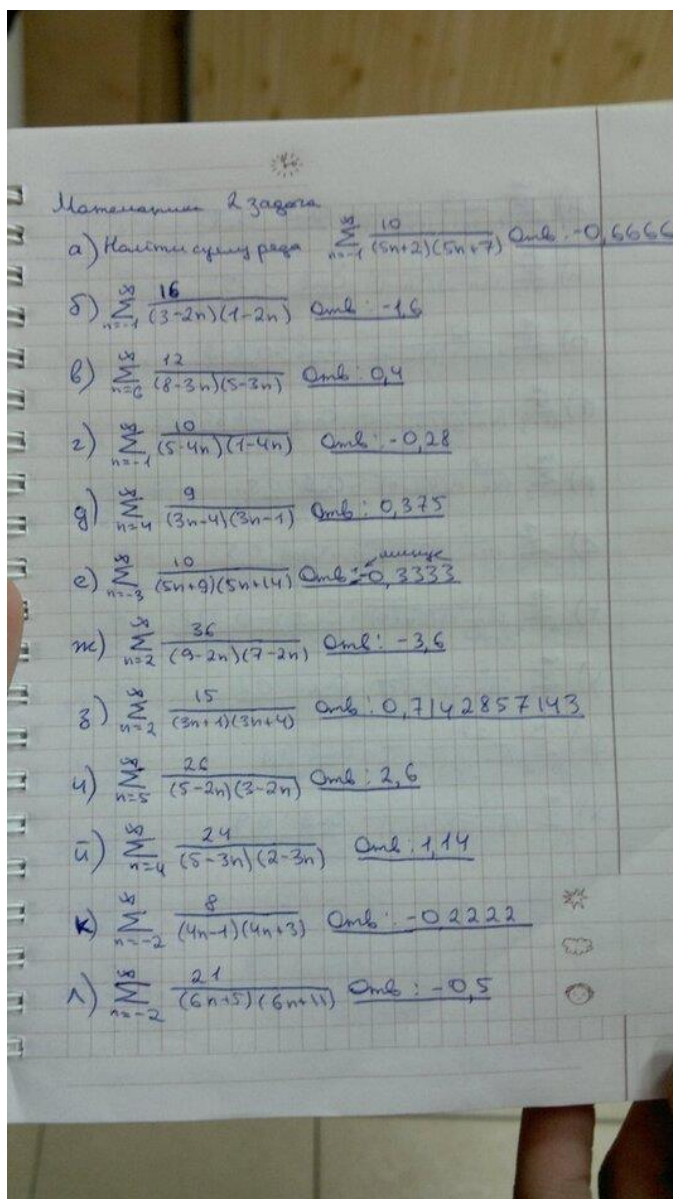 Математика 2 задача
а) Найти сумму ряда ∞ Σ n=-1 10/(5n+2)(5n+7) Отв: -0,6666
б) ∞ Σ n=-1 16/(3-2n)(1-2n) Отв: -1,6
в) ∞ Σ n=6 12/(8-3n)(5-3n) Отв: 0,4
г) ∞ Σ n=-1 10/(5-4n)(1-4n) Отв: -0,28
д) ∞ Σ n=4 9/(3n-4)(3n-1) Отв: 0,375
минус
е) ∞ Σ n=-3 10/(5n+9)(5n+14) Отв: -0,3333
ж) ∞ Σ n=2 36/(9-2n)(7-2n) Отв: -3,6
з) ∞ Σ n=2 15/(3n+1)(3n+4) Отв: 0,7142857143
и) ∞ Σ n=5 26/(5-2n)(3-2n) Отв: 2,6
й) ∞ Σ n=4 24/(5-3n)(2-3n) Отв: 1,14
к) ∞ Σ n=-2 8/(4n-1)(4n+3) Отв: -02222
л) ∞ Σ n=-2 21/(6n+5)(6n+11) Отв: -0,5